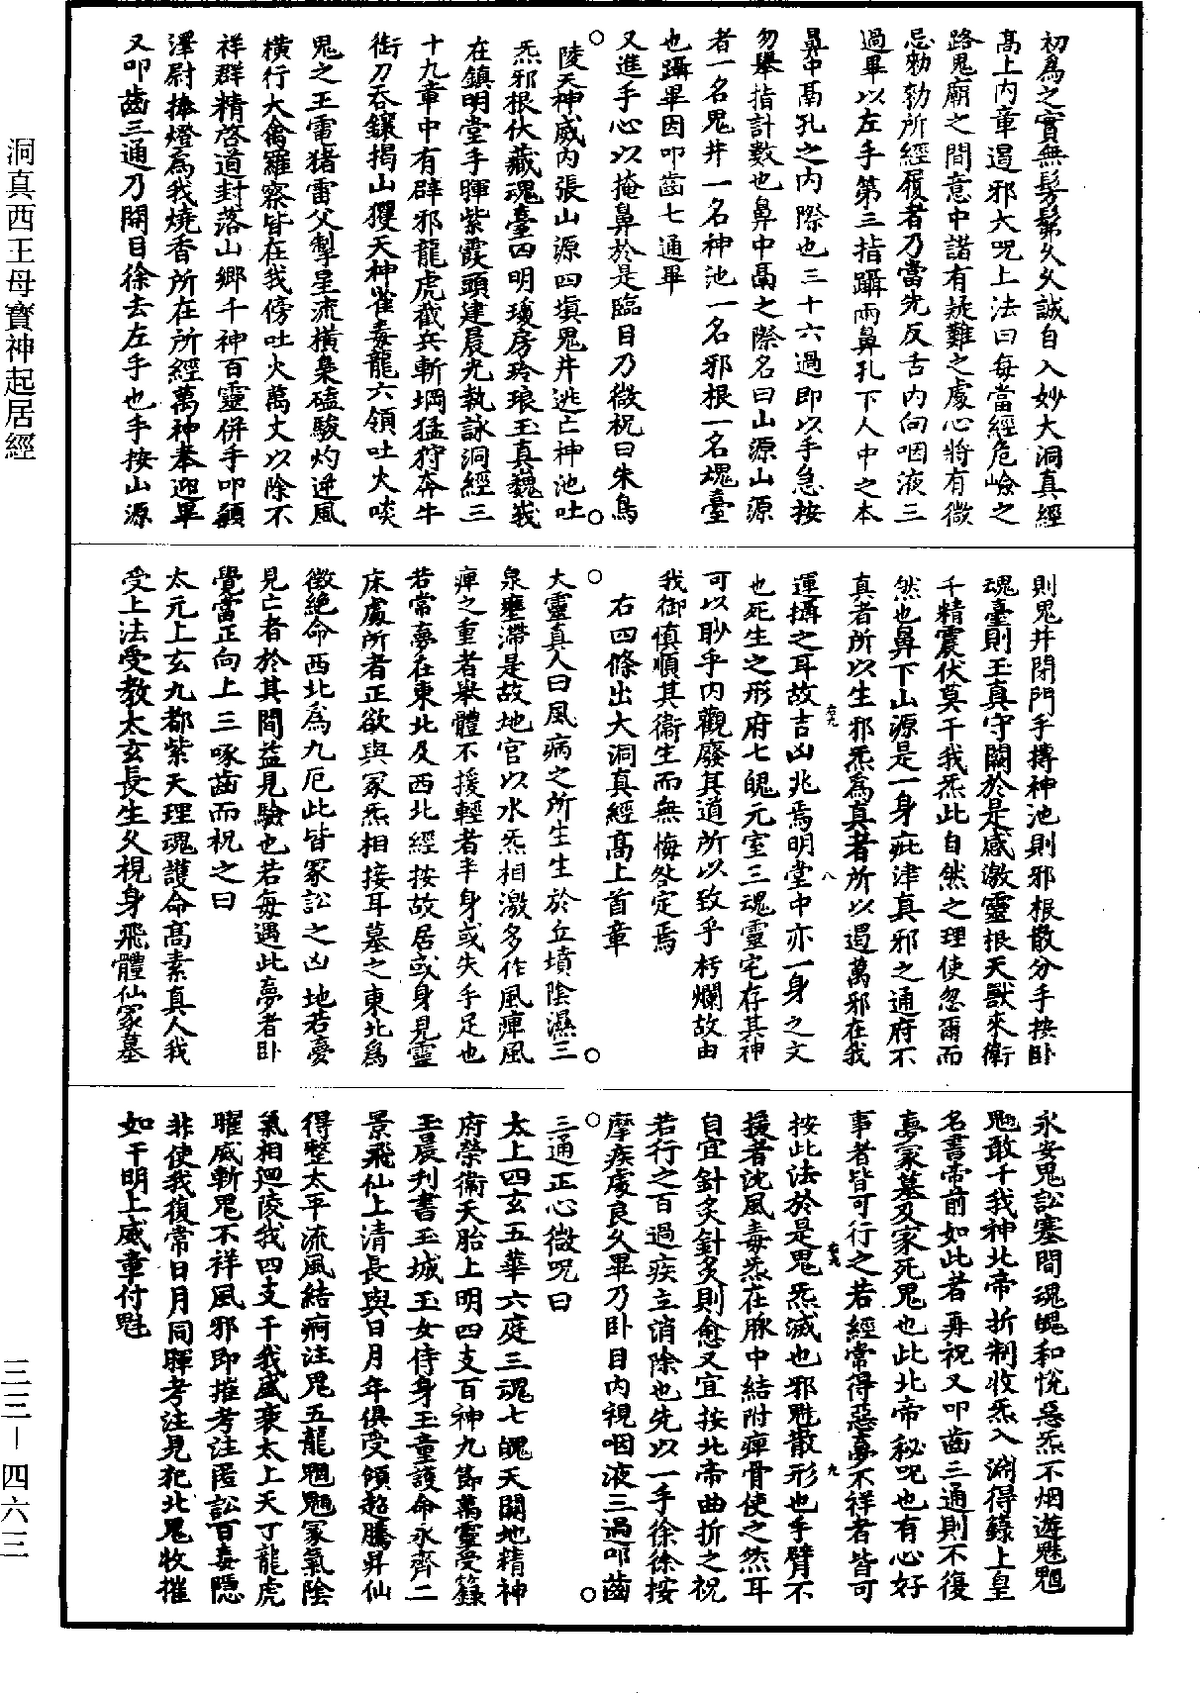 洞真西王母寶神起居經
初爲之實無髣髴久久誠自入妙大洞真經
高上內章遏邪大呪上法曰每當經危嶮之
路鬼廟之間意中諸有疑難之處心將有微
忌勑勑所經履者乃當先反舌內向咽液三
過畢以左手第三指躡兩鼻孔下人中之本
鼻中鬲孔之內際也三十六過即以手急按
勿舉指計數也鼻中鬲之際名曰山源山源
者一名鬼井一名神池一名邪根一名魂臺
也躡畢因叩齒七通畢
又進手心以掩鼻於是臨目乃微祝曰朱鳥
陵天神威內張山源四塡鬼井逃亡神池吐
炁邪根伏藏魂臺四明瓊房玲琅玉真巍峩
在鎮明堂手暉紫霞頭建晨光執詠洞經三
十九章中有辟邪龍虎截兵斬堈猛狩奔牛
銜刀吞鑲揭山玃天神雀毒龍六領吐火啖
鬼之王電猪雷父掣星流橫梟磕駿灼逆風
橫行大禽羅察皆在我傍吐火萬丈以除不
祥群精啓道封落山鄉千神百靈併手叩顙
澤尉捧燈爲我燒香所在所經萬神奉迎畢
又叩齒三通乃開目徐去左手也手按山源
則鬼井閉門手摶神池則邪根散分手按卧
魂臺則玉真守關於是感激靈根天獸來衛
千精震伏莫干我炁此自然之理使忽爾而
然也鼻下山源是一身疵津真邪之通府不
真者所以生邪炁爲真者所以遏萬邪在我
運攝之耳故吉凶兆焉明堂中亦一身之文
也死生之形府七魄元室三魂靈宅存其神
可以眇乎內觀廢其道所以致乎朽爛故由
我御慎順其衛生而無悔咎定焉
右四條出大洞真經高上首章
大靈真人曰風病之所生生於丘墳陰濕三
泉壅滯是故地官以水炁相激多作風痺風
痺之重者舉體不援輕者半身或失手足也
若常夢在東北及西北經按故居或身見靈
床處所者正欲與冢炁相接耳墓之東北爲
徵絕命西北爲九厄此皆冢訟之凶地若憂
見亡者於其間益見驗也若每遇此夢者卧
覺當正向上三啄齒而祝之曰
太元上玄九都紫天理魂護命高素真人我
受上法受教太玄長生久視身飛體仙冢墓
永安鬼訟塞間魂魄和悅惡炁不烟遊魅魍
魎敢干我神北帝折制收炁入淵得籙上皇
名書帝前如此者再祝又叩齒三通則不復
夢冢墓及家死鬼也此北帝秘呪也有心好
事者皆可行之若經常得惡夢不祥者皆可
按此法於是鬼炁滅也邪魅散形也手臂不
援者沈風毒炁在脉中結附痺骨使之然耳
自宜針炙針炙則愈又宜按北帝曲折之祝
若行之百過疾立消除也先以一手徐徐按
摩疾處良久畢乃卧目內視咽液三過叩齒
三通正心微呪曰
太上四玄五華六庭三魂七魄天關地精神
府榮衛天胎上明四支百神九節萬靈受籙
玉晨刋書玉城玉女侍身玉童護命永齊二
景飛仙上清長與日月年俱受傾超騰昇仙
得整太平流風結痾注鬼五龍魍魎冢氣陰
氣相迴陵我四支干我盛衰太上天丁龍虎
曜威斬鬼不祥風邪即摧考注匿訟百毒隱
非使我復常日月同暉考注見犯北鬼收摧
如干明上威章付魁
右九
八
右九
九
三三－四六三